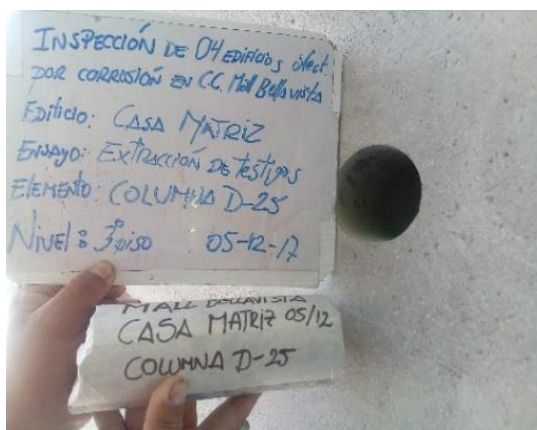 INSPECCIÓN DE 04 EDIFICIOS afect
POR CORROSIÓN EN C.C. Mall Bellavista
Edificio: CASA MATRIZ
ENSAYO: EXTRACCIÓN DE TESTIGOS
ELEMENTO: COLUMNA D-25
NIVEL: 3° piso 05-12-17
MALL BELLAVISTA
CASA MATRIZ 05/12
COLUMNA D-25